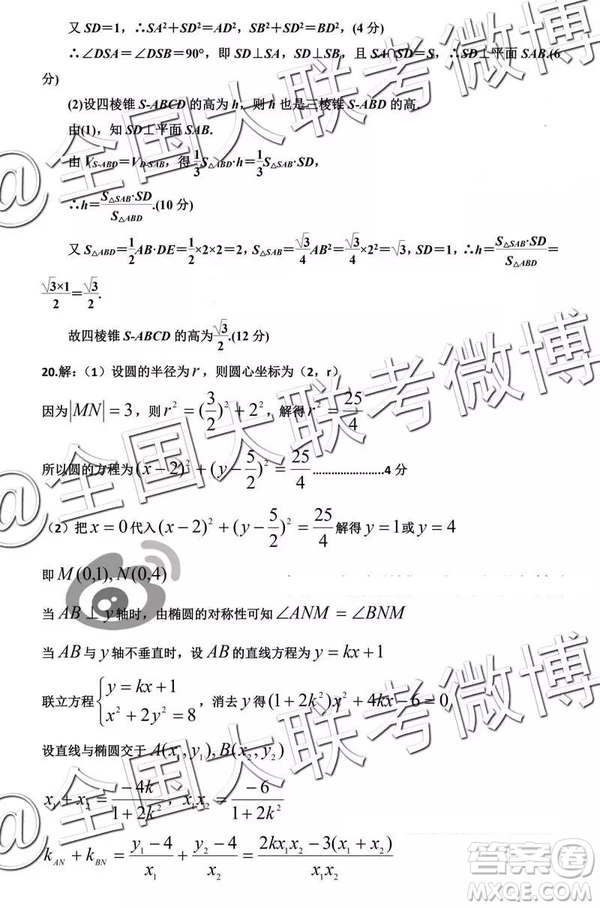 又 SD=1，∴SA²+SD²=AD²，SB²+SD²=BD²，(4 分)
∴∠DSA=∠DSB=90°，即 SD⊥SA，SD⊥SB，且 SA∩SD=S，∴SD⊥平面 SAB.(6
分)
(2)设四棱锥 S-ABCD 的高为 h，则 h 也是三棱锥 S-ABD 的高.
由(1)，知 SD⊥平面 SAB.
由 V_{S-ABD}=V_{D-SAB}，得 1/3 S_{△ABD}·h=1/3 S_{△SAB}·SD，
∴h=S_{△SAB}·SD/S_{△ABD}.(10 分)
又 S_{△ABD}=1/2 AB·DE=1/2×2×2=2，S_{△SAB}=√3/4 AB²=√3/4×2²=√3，SD=1，∴h=S_{△SAB}·SD/S_{△ABD}=
√3×1/2=√3/2.
故四棱锥 S-ABCD 的高为√3/2.(12 分)
20.解：（1）设圆的半径为 r，则圆心坐标为（2，r）
因为|MN|=3，则 r²=(3/2)²+2²，解得 r²=25/4
所以圆的方程为(x-2)²+(y-5/2)²=25/4........................4 分
（2）把 x=0 代入(x-2)²+(y-5/2)²=25/4 解得 y=1 或 y=4
即 M(0,1),N(0,4)
当 AB⊥y 轴时，由椭圆的对称性可知∠ANM=∠BNM
当 AB 与 y 轴不垂直时，设 AB 的直线方程为 y=kx+1
联立方程{y=kx+1 x²+2y²=8，消去 y 得(1+2k²)x²+4kx-6=0
设直线与椭圆交于 A(x₁,y₁),B(x₂,y₂)
x₁+x₂=-4k/1+2k²，x₁x₂=-6/1+2k²
k_{AN}+k_{BN}=y₁-4/x₁+y₂-4/x₂=2kx₁x₂-3(x₁+x₂)/x₁x₂
@全国大联考微博
@全国大联考微博
@全国大联考微博
答案卷
MXQE.COM